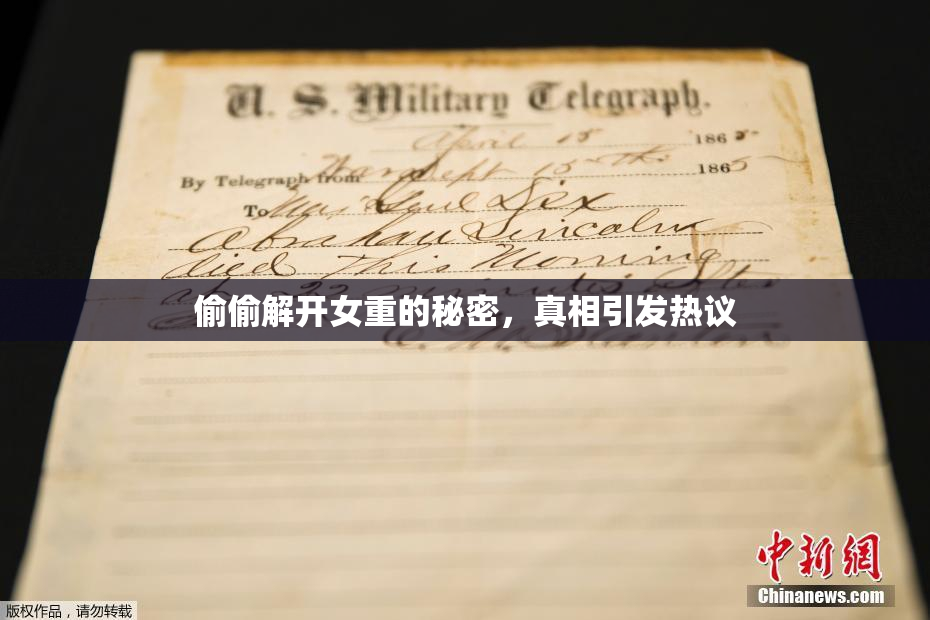 U. S. Military Telegraph.
April 15 1865.
By Telegraph from War Dept 15th 1865
To Maj Genl Dix
Abraham Lincoln
died This Morning
22 minutes after
偷偷解开女重的秘密，真相引发热议
E. M. Stanton
中新网
Chinanews.com
版权作品，请勿转载